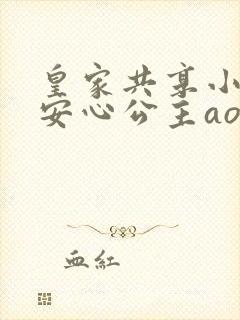 皇家共享小
安心公主ao
血紅